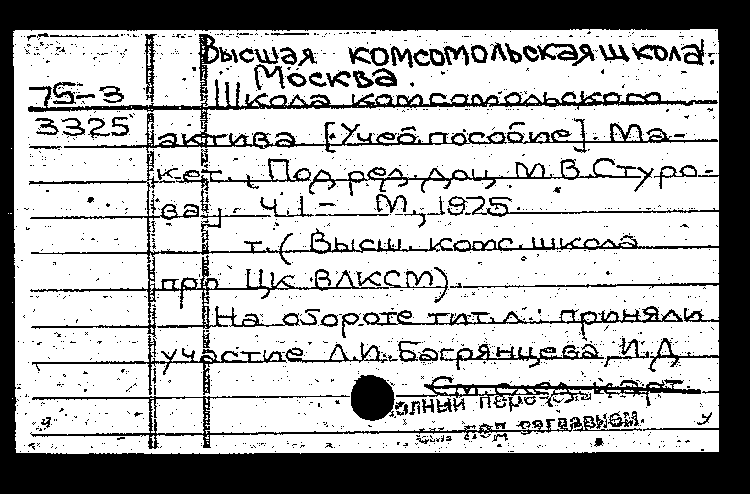 Высшая комсомольская школа.
Москва.
75-3
Школа комсомольского
3325
актива [Учеб. пособие]. Ма-
кет. [Под ред. доц. М.В. Стуро-
ва]. Ч.1- М., 1925.
т. (Высш. комс. школа
при ЦК ВЛКСМ).
На обороте тит. л.: приняли
участие Л.И. Багрянцева, И.Д.
См. след. карт.
Полный перечень
см. под заглавием.